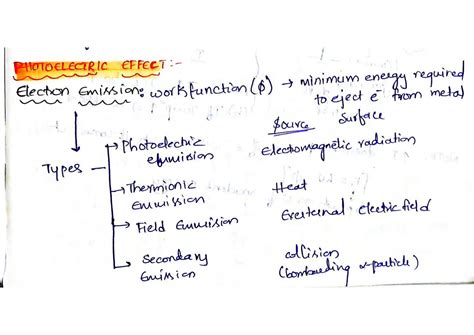 PHOTOELECTRIC EFFECT:-
Electron Emission: workfunction (ϕ) → minimum energy required
to eject e⁻ from metal
surface
Source
Types
→ Photoelectric emmision Electromagnetic radiation
→ Thermionic Emmision Heat
→ Field Emmision External Electric field
→ Secondary Emission collision
(bombarding α-particle)